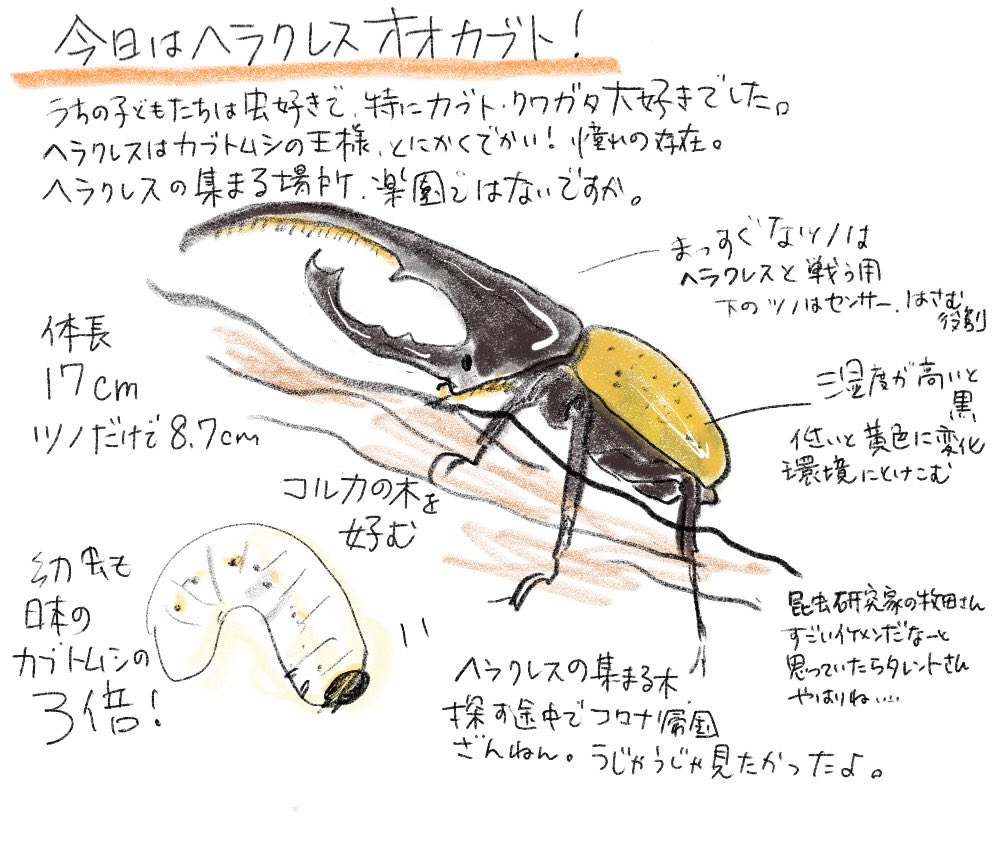 今日はヘラクレスオオカブト!
うちの子どもたちは虫好きで、特にカブト・クワガタ大好きでした。
ヘラクレスはカブトムシの王様、とにかくでかい! 憧れの存在。
ヘラクレスの集まる場所、楽園ではないですか。
まっすぐなツノは
ヘラクレスと戦う用
下のツノはセンサー、はさむ
役割
体長
17cm
ツノだけで8.7cm
湿度が高いと
黒
低いと黄色に変化
環境にとけこむ
コルカの木を
好む
幼虫も
日本の
カブトムシの
3倍!
昆虫研究家の牧田さん
すごいイケメンだなーと
思っていたらタレントさん
やはりね…
ヘラクレスの集まる木
探す途中でコロナ帰国
ざんねん。うじゃうじゃ見たかったよ。